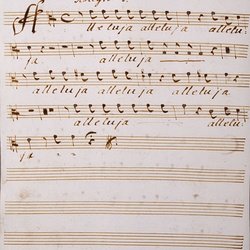 Alleluja alleluja allelu:
ja. alleluja
alleluja alleluja alleluja
alleluja allelu:
ja